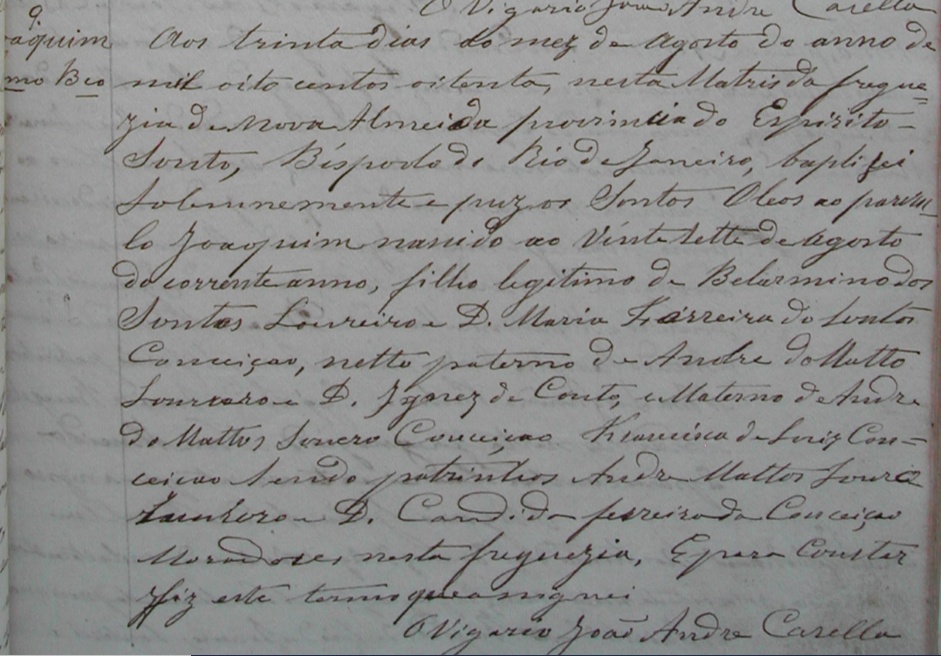 O Vigario João Andre Casella
9.
aquim
mo Bco
Aos trinta dias do mez de Agosto do anno de
mil oito centos oitenta, nesta Matris da fregue=
zia de Nova Almeida provincia do Espirito-
Santo, Bispado do Rio de Janeiro, baptizei
Solennemente e puz os Santos Oleos ao parvu-
lo Joaquim nascido ao Vinte sette de Agosto
do corrente anno, filho legitimo de Belarmino dos
Santos Loureiro e D. Maria Ferreira do Santos
Conceiçao, netto paterno de Andre do Matto
Loureiro e D. Ignez de Couto, e Materno de Andre
do Mattos Conceiçao Francisca de Con-
ceicao Sendo patrinhos Andre Mattos
e D. Candida ferreira da Conceiçao
Moradores nesta freguezia, E para Constar
fiz este termo que assignei
O Vigario João Andre Casella